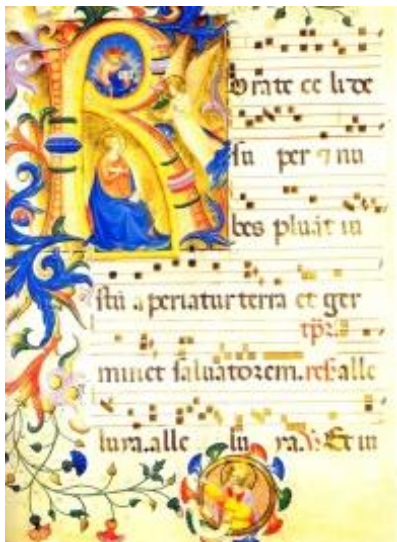 Rorate ce li de
su per ⁊ nu
bes pluāt iu
stū aperiatur terra et ger
minet saluatorem. alle
luya. alle lu ya. Et iu